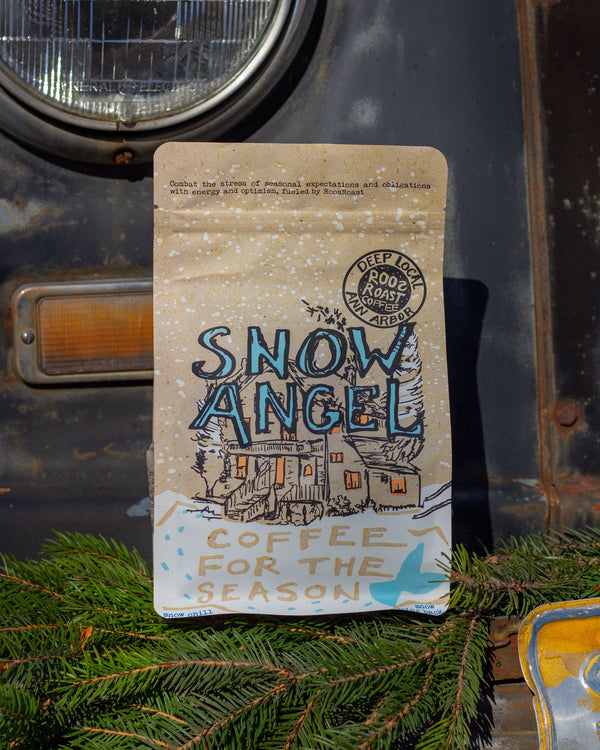 Combat the stress of seasonal expectations and obligations
with energy and optimism, fueled by RoosRoast
DEEP LOCAL
ROOS
ROAST
COFFEE
ANN ARBOR
SNOW
ANGEL
COFFEE
FOR THE
SEASON
snow chill
snow
back